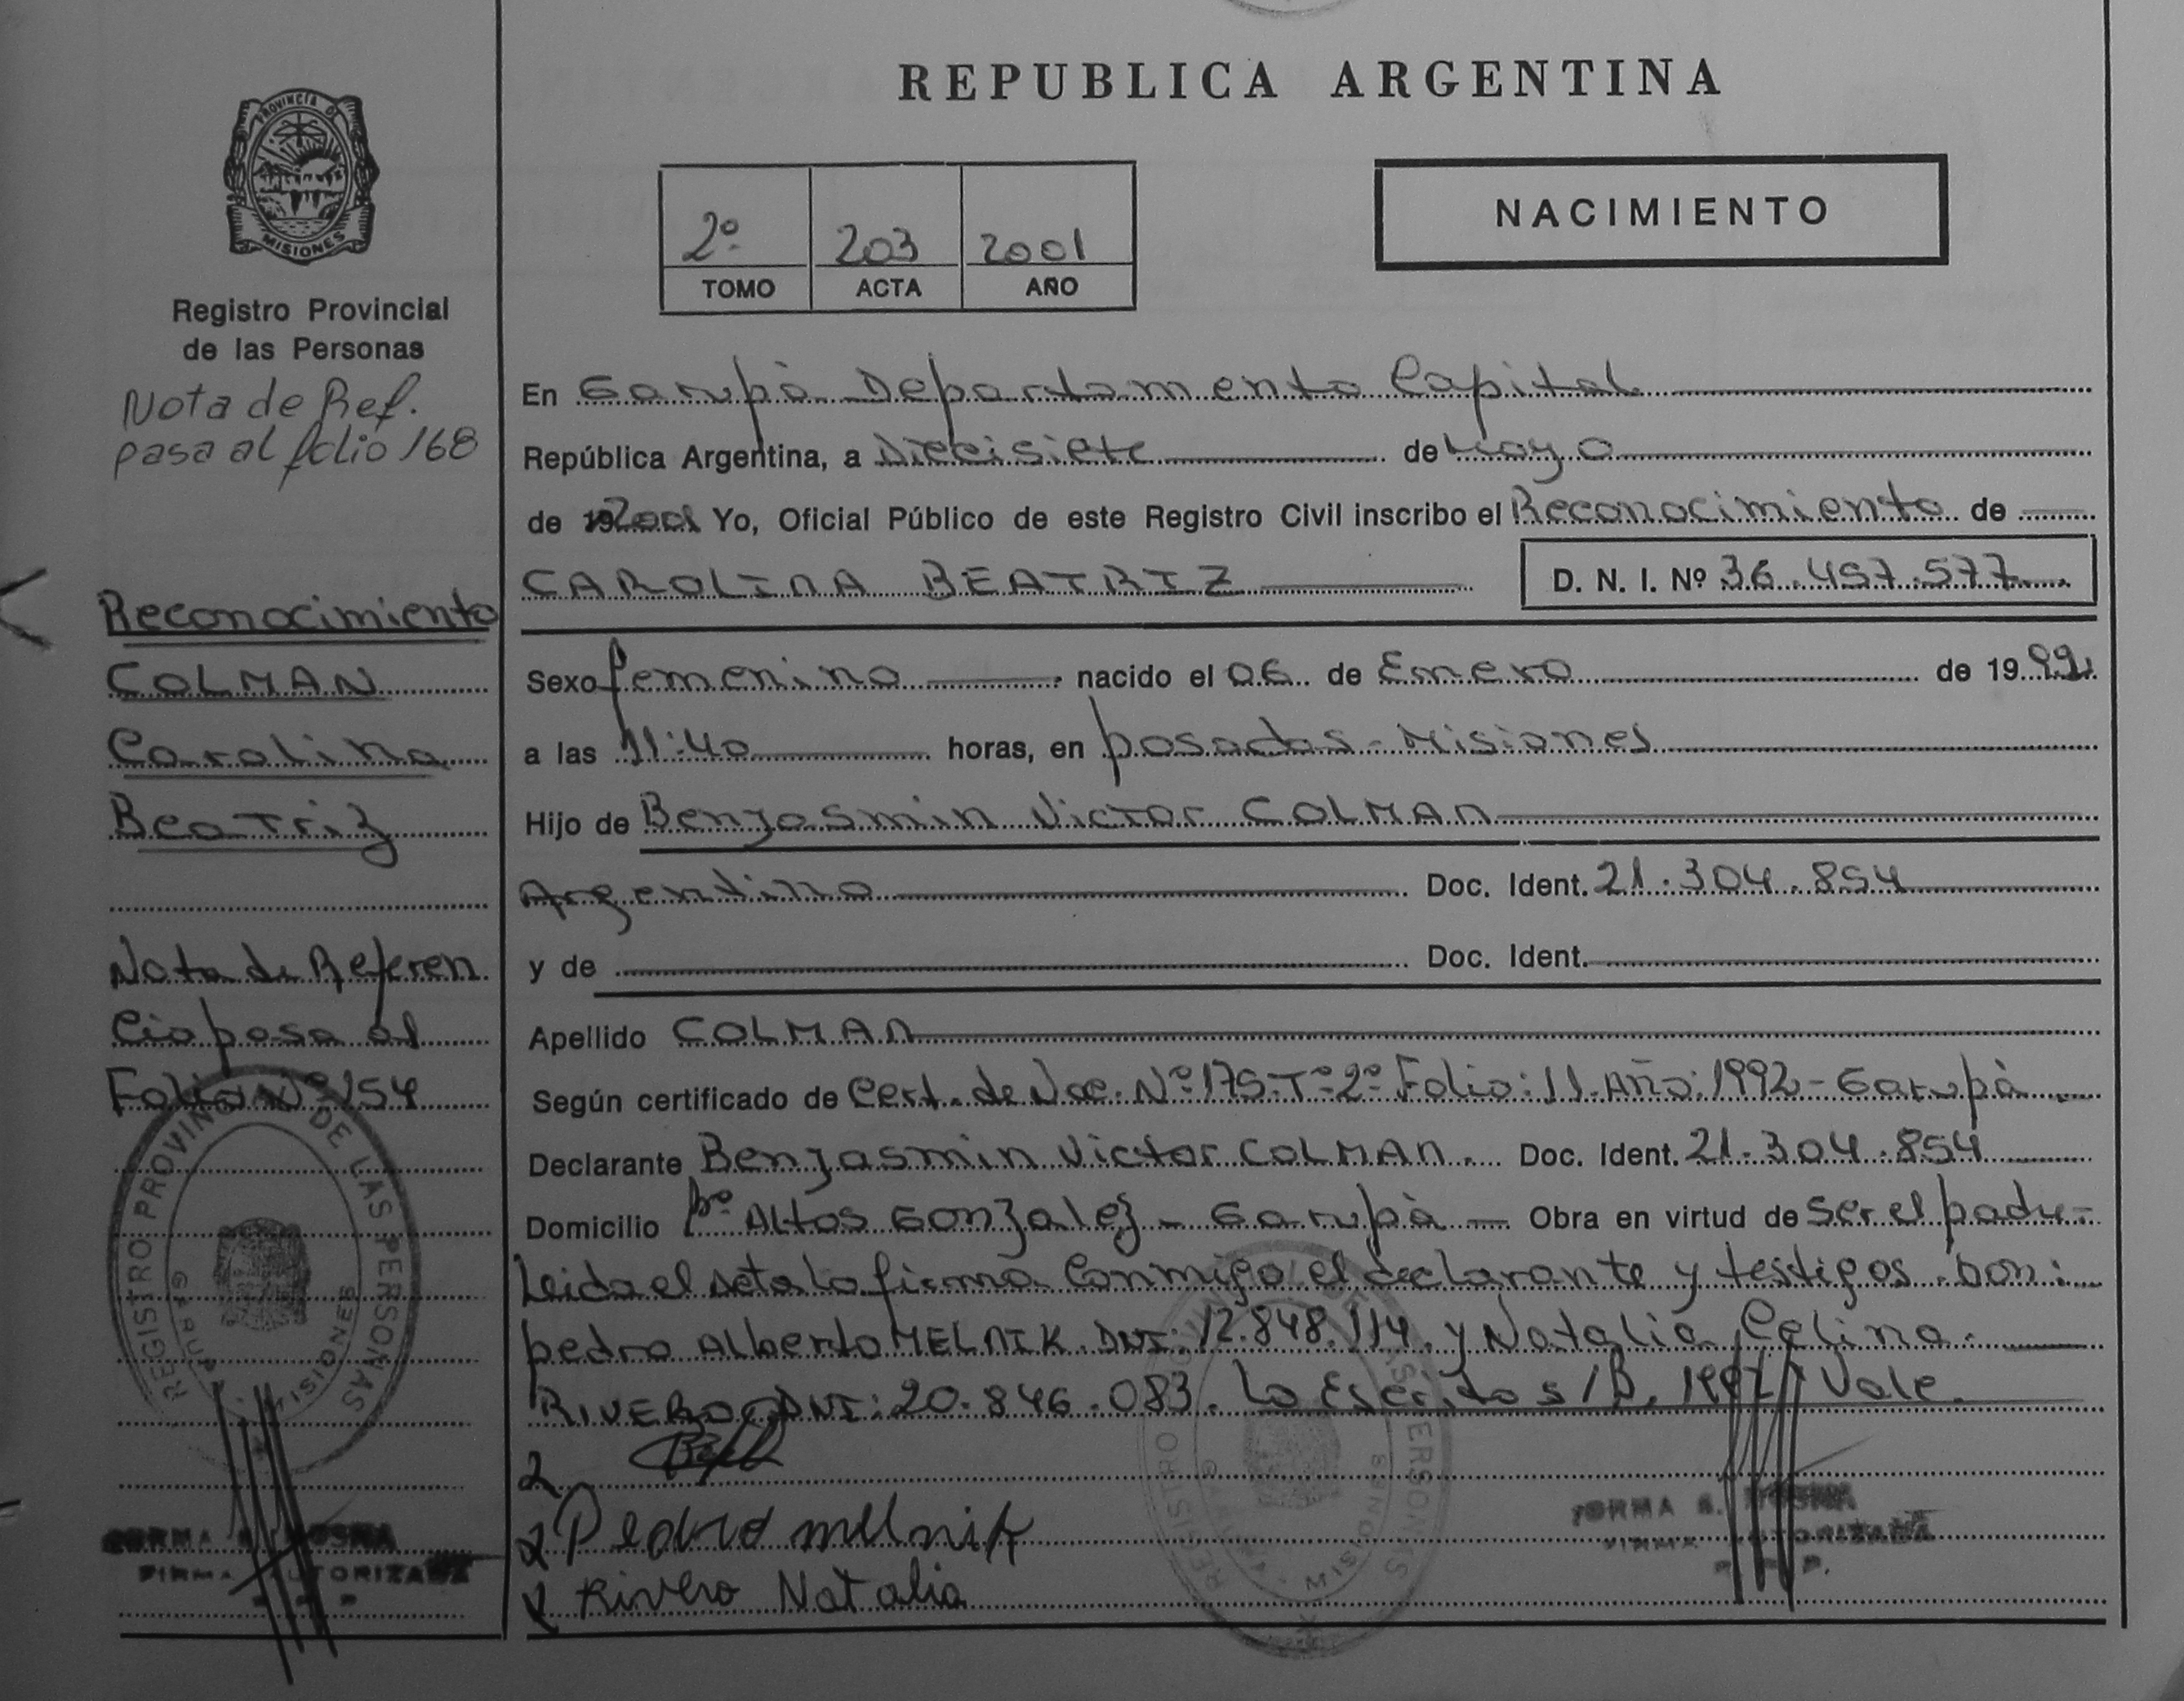 REPUBLICA ARGENTINA
PROVINCIA DE
MISIONES
Registro Provincial
de las Personas
Nota de Ref.
pasa al folio 168
Reconocimiento
COLMAN
Carolina
Beatriz
Nota de Referen
cia pasa al
Folio Nº 154
REGISTRO PROVINCIAL DE LAS PERSONAS
GARUPA MISIONES
FIRMA AUTORIZADA
2º 203 2001
TOMO ACTA AÑO
NACIMIENTO
En Garupà Departamento Capital
República Argentina, a Diecisiete de Mayo
de 2001 Yo, Oficial Público de este Registro Civil inscribo el Reconocimiento de
CAROLINA BEATRIZ D. N. I. Nº 36.457.577
Sexo femenino nacido el 06 de Enero de 1992
a las 11:40 horas, en posadas - Misiones
Hijo de Benjasmin Victor COLMAN
Argentino Doc. Ident. 21.304.854
y de Doc. Ident.
Apellido COLMAN
Según certificado de Cert. de Nac. Nº 175-Tº-2º Folio: 11. Año: 1992 - Garupà
Declarante Benjasmin Victor COLMAN. Doc. Ident. 21.304.854
Domicilio Bº Altos Gonzalez - Garupà Obra en virtud de ser el padre-
Leida el acta la firma conmigo el declarante y testigos Don:
pedro Alberto MELNIK. DNI: 12.848.114. y Natalia Celina.
RIVERO DNI: 20.846.083. Lo Escrito s/B. 1992 Vale.
Pedro melnik
Rivero Natalia
REGISTRO PERSONAS
MISIONES